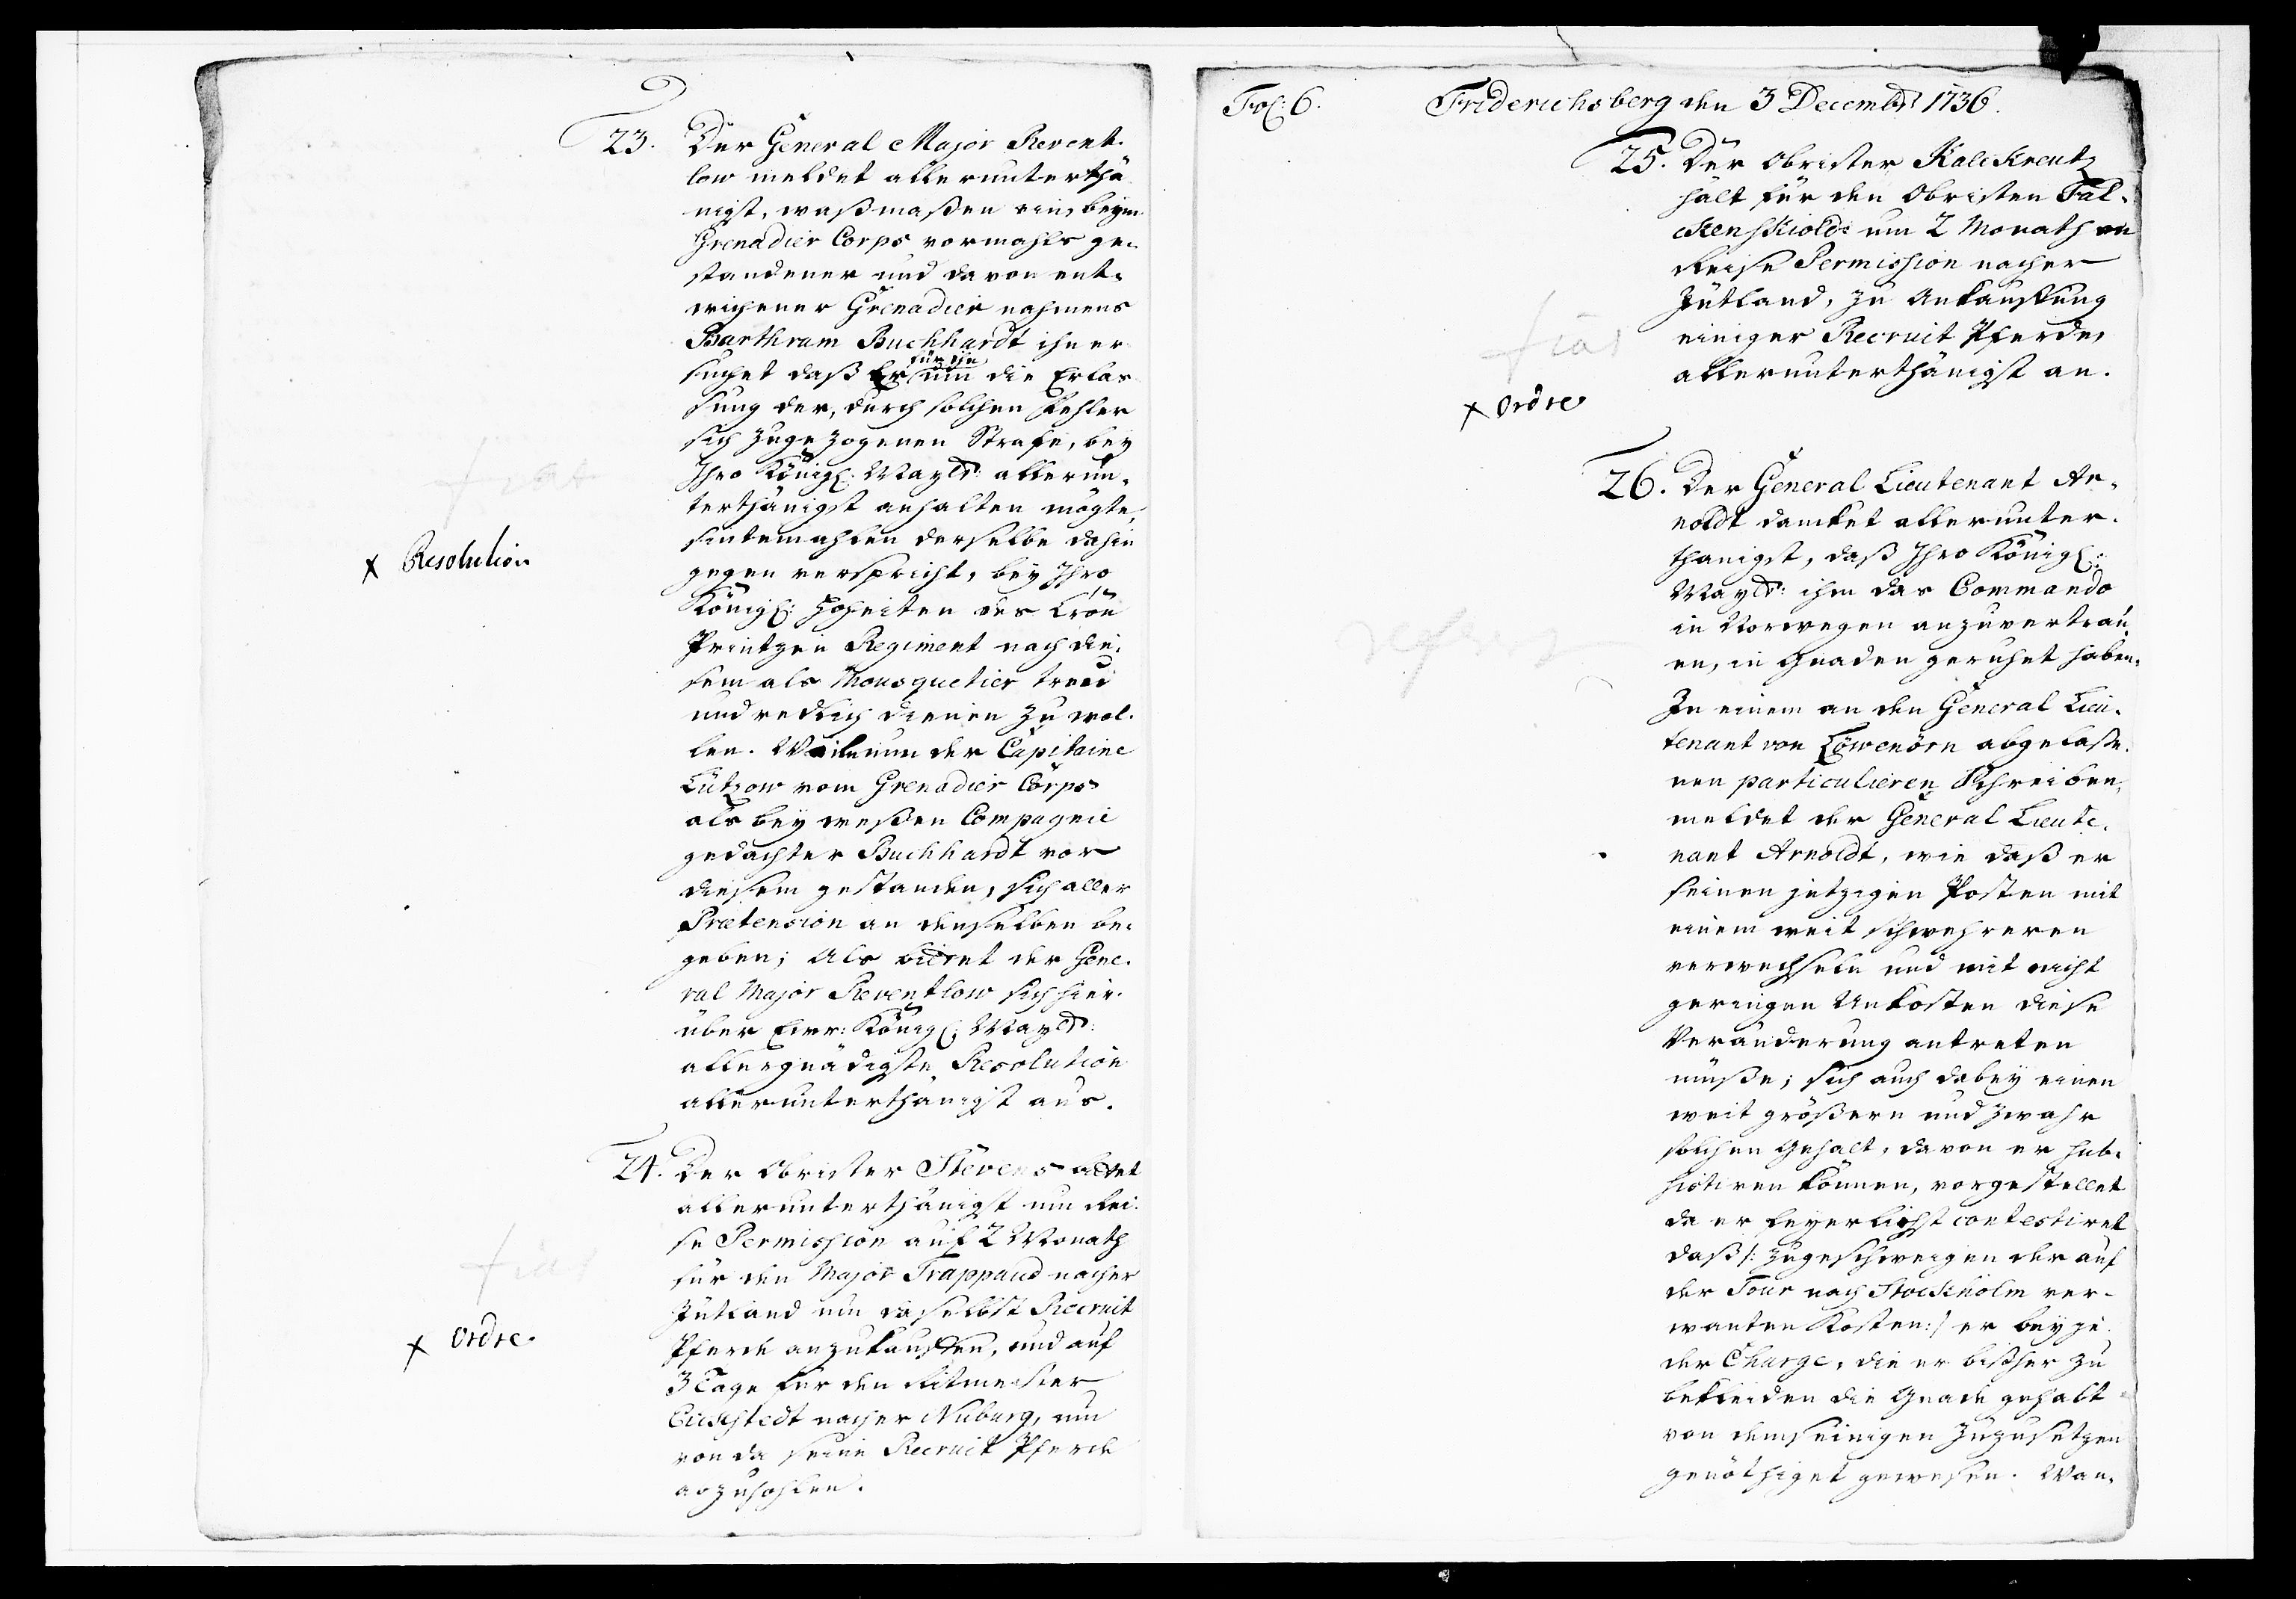 23. Der General Major Revent-
low meldet allerunterthä
nigst, waßmaßen ein, beym
Grenadier Corps vormahls ge-
standener und davon ent-
wichener Grenadier nahmens
Barthram Buchhardt ihn er
suchet daß Er für ihn um die Erlas
sung der, durch solchen Fehler
sich zugezogenen Strafe, bey
Ihro Königl: Mayt: allerun-
terthänigst anhalten mögte,
sintemahlen derselbe dahin
gegen verspricht, bey Ihro
Königl: Hoheiten des Cron
Printzen Regiment nach die-
sem als Mousquetier treu
und redlich dienen zu wol-
len. Weiln nun der Capitaine
Lützow vom Grenadier Corps
als bey weßen Compagnie
gedachter Buchhardt vor
diesem gestanden, sich aller
Prætension an denselben be-
geben; Als bittet der Gene-
ral Major Reventlow sich hier-
über Ewr: Königl: Mayt:
allergnädigste Resolution
allerunterthänigst aus.
fiat
x Resolution
24. Der Obrister Stevens bittet
allerunterthänigst um Rei-
se Permission auf 2 Monath
für den Major Trappaud nacher
Jütland um daselbst Recruit
Pferde anzukauffen, und auf
3 Tage für den Ritmeister
Eickstedt nacher Nüburg, um
von da seine Recruit Pferde
abzuhohlen.
fiat
x Ordre
Fol: 6. Friderichsberg den 3 Decembr 1736.
25. Der Obrister Kalckreutz
hält für den Obristen Fal-
ckenskiold um 2 Monath
Reise Permission nacher
Jütland, zu Ankauffung
einiger Recruit Pferde,
allerunterthänigst an.
fiat
x Ordre
26. Der General Lieutenant Ar-
noldt dancket allerunter-
thänigst, daß Ihro Königl:
Mayt: ihm das Commando
in Norwegen anzuvertrau-
en, in Gnaden geruhet haben.
In einem an den General Lieu-
tenant von Löwenörn abgelaße-
nen particulieren Schreiben,
meldet der General Lieute-
nant Arnoldt, wie daß er
seinen jetzigen Posten mit
einem weit schwehreren
verwechseln und mit nicht
geringen Unkosten diese
Veränderung antreten
müße; sich auch dabey einen
weit größern und zwahr
solchen Gehalt, davon er sub-
sistiren können, vorgestellet
da er feyerlichst contestiret
daß /: zugeschweigen der auf
der Tour nach Stockholm ver-
wanten Kosten :/ er bey je-
der Charge, die er bißher zu
bekleiden die Gnade gehabt
von dem seinigen zuzusetzen
genöthiget gewesen. Wan-